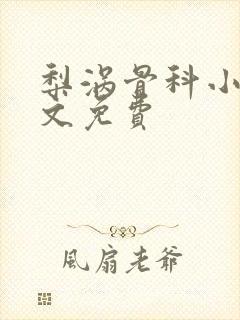 梨涡骨科小
文免費
風扇老爷